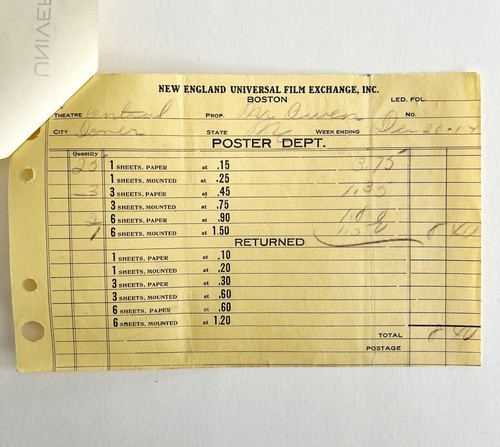 UNIVER
NEW ENGLAND UNIVERSAL FILM EXCHANGE, INC.
BOSTON LED. FOL.
THEATRE PROP. Mr Owen No.
CITY STATE WEEK ENDING
POSTER DEPT.
Quantity
25 1 SHEETS, PAPER at .15 3.75
1 SHEETS, MOUNTED at .25
3 3 SHEETS, PAPER at .45 1.35
3 SHEETS, MOUNTED at .75
2 6 SHEETS, PAPER at .90 1.80
1 6 SHEETS, MOUNTED at 1.50 1.50 8 40
RETURNED
1 SHEETS, PAPER at .10
1 SHEETS, MOUNTED at .20
3 SHEETS, PAPER at .30
3 SHEETS, MOUNTED at .60
6 SHEETS, PAPER at .60
6 SHEETS, MOUNTED at 1.20
TOTAL 8 40
POSTAGE